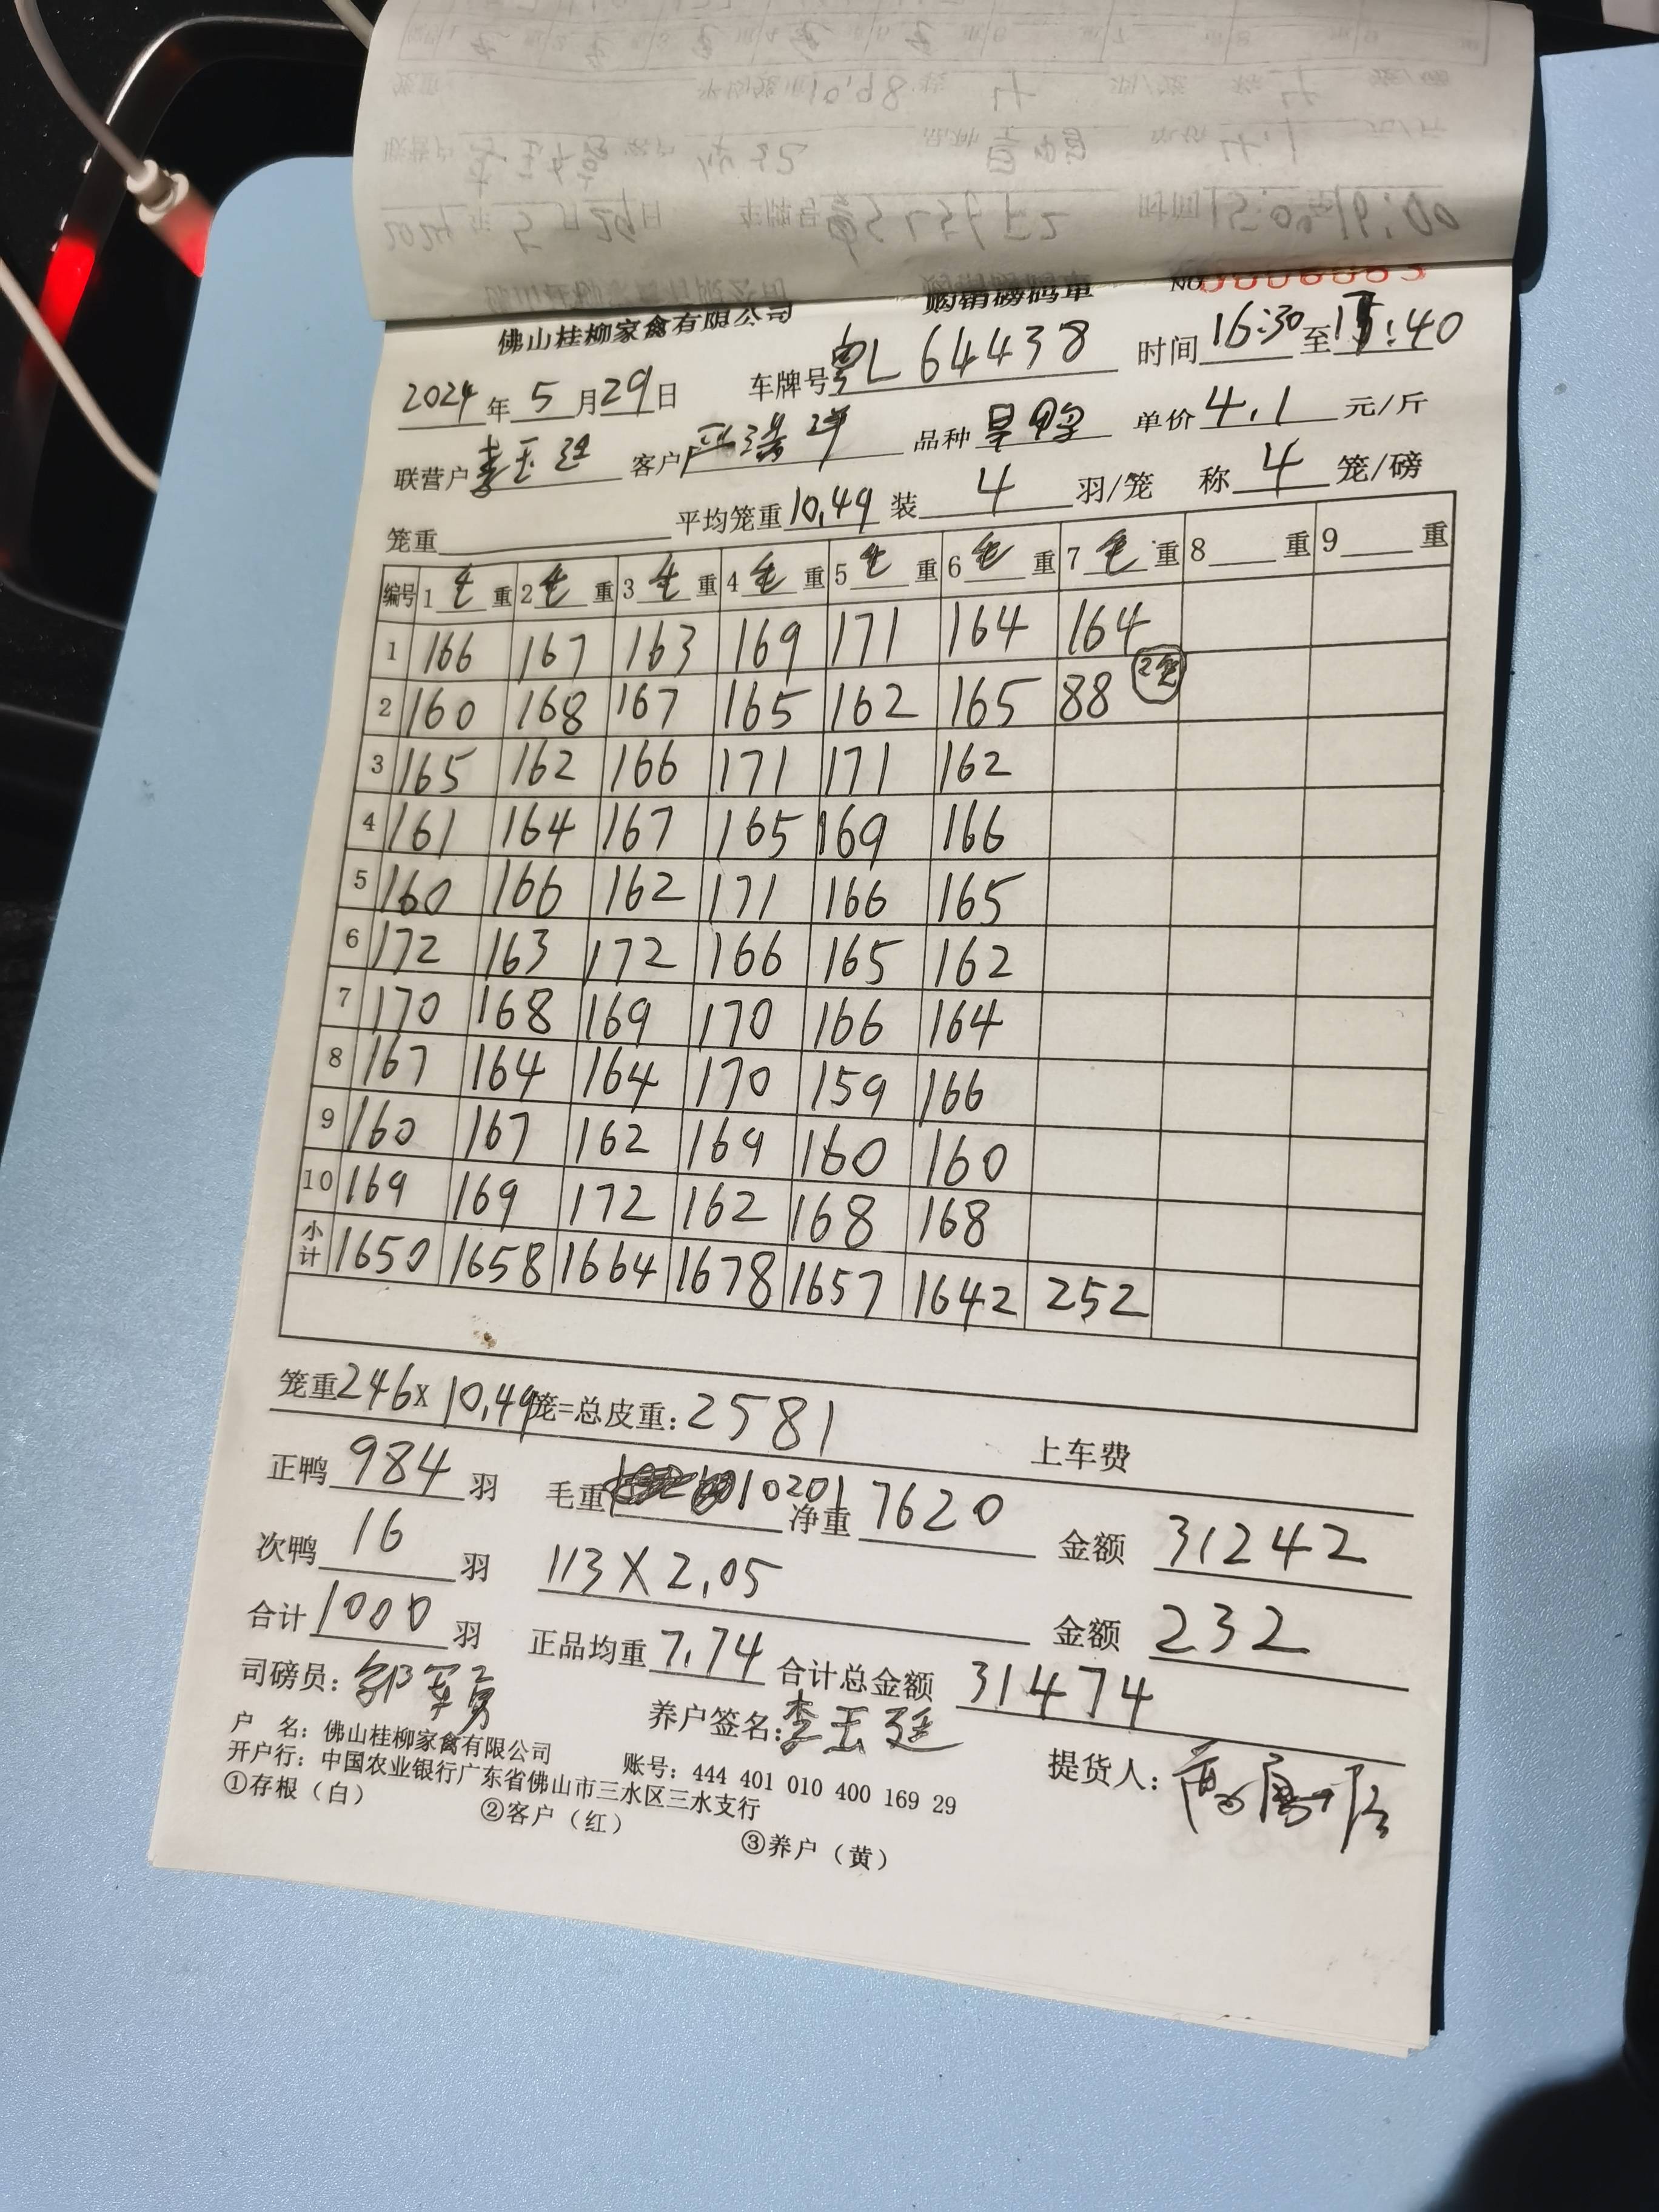 佛山桂柳家禽有限公司 购销磅码单 No
2024年5月29日 车牌号粤L 64438 时间16:30至17:40
联营户李玉廷 客户 品种 单价4.1元/斤
笼重 平均笼重10.49 装4羽/笼 称4笼/磅
编号 1毛重 2毛重 3毛重 4毛重 5毛重 6毛重 7毛重 8重 9重
1 166 167 163 169 171 164 164
2 160 168 167 165 162 165 88 2笼
3 165 162 166 171 171 162
4 161 164 167 165 169 166
5 160 166 162 171 166 165
6 172 163 172 166 165 162
7 170 168 169 170 166 164
8 167 164 164 170 159 166
9 160 167 162 169 160 160
10 169 169 172 162 168 168
小计 1650 1658 1664 1678 1657 1642 252
笼重246x10.49笼=总皮重:2581 上车费
正鸭984羽 毛重10201 净重7620 金额31242
次鸭16羽 113X2.05 金额232
合计1000羽 正品均重7.74 合计总金额31474
司磅员: 养户签名:李玉廷 提货人:
户 名:佛山桂柳家禽有限公司 账号:444 401 010 400 169 29
开户行:中国农业银行广东省佛山市三水区三水支行
①存根(白) ②客户(红) ③养户(黄)